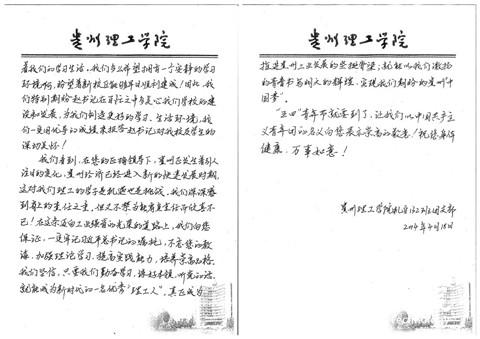 贵州理工学院
着我们的学习生活。我们多么希望拥有一个安静的学习
环境啊,盼望着新校区能够早日顺利建成!因此,我们
特别期盼赵书记在百忙之中多关心我们学校的建
设和发展,为我们创造更好的学习、生活环境,我
们一定用优异的成绩来报答赵书记对我校及学生的
深切关怀!
我们看到,在您的正确领导下,贵州正发生着引人
注目的变化,贵州经济已经进入新的快速发展时期,
这对我们理工的学子是机遇也是挑战,我们深深感
到肩上的责任之重,但又不禁为能肩负重任而欣喜不
已!在这条迈向工业强省的光荣的道路上,我们向您
保证,一定牢记习近平总书记的嘱托,不忘您的教
诲,加强理论学习,提高实践能力,培养崇高品格。
我们坚信,只要我们勤奋学习,练好本领,听党的话,
就能成为新时代的一名优秀“理工人”,真正成为
贵州理工学院
推进贵州工业发展的坚挺脊梁;就能以我们激扬
的青春书写明天的辉煌,实现我们期盼的贵州“中
国梦”。
“五四”青年节就要到了,让我们以中国共产主
义青年团的名义向您表示崇高的敬意!祝您身体
健康,万事如意!
2014年4月18日